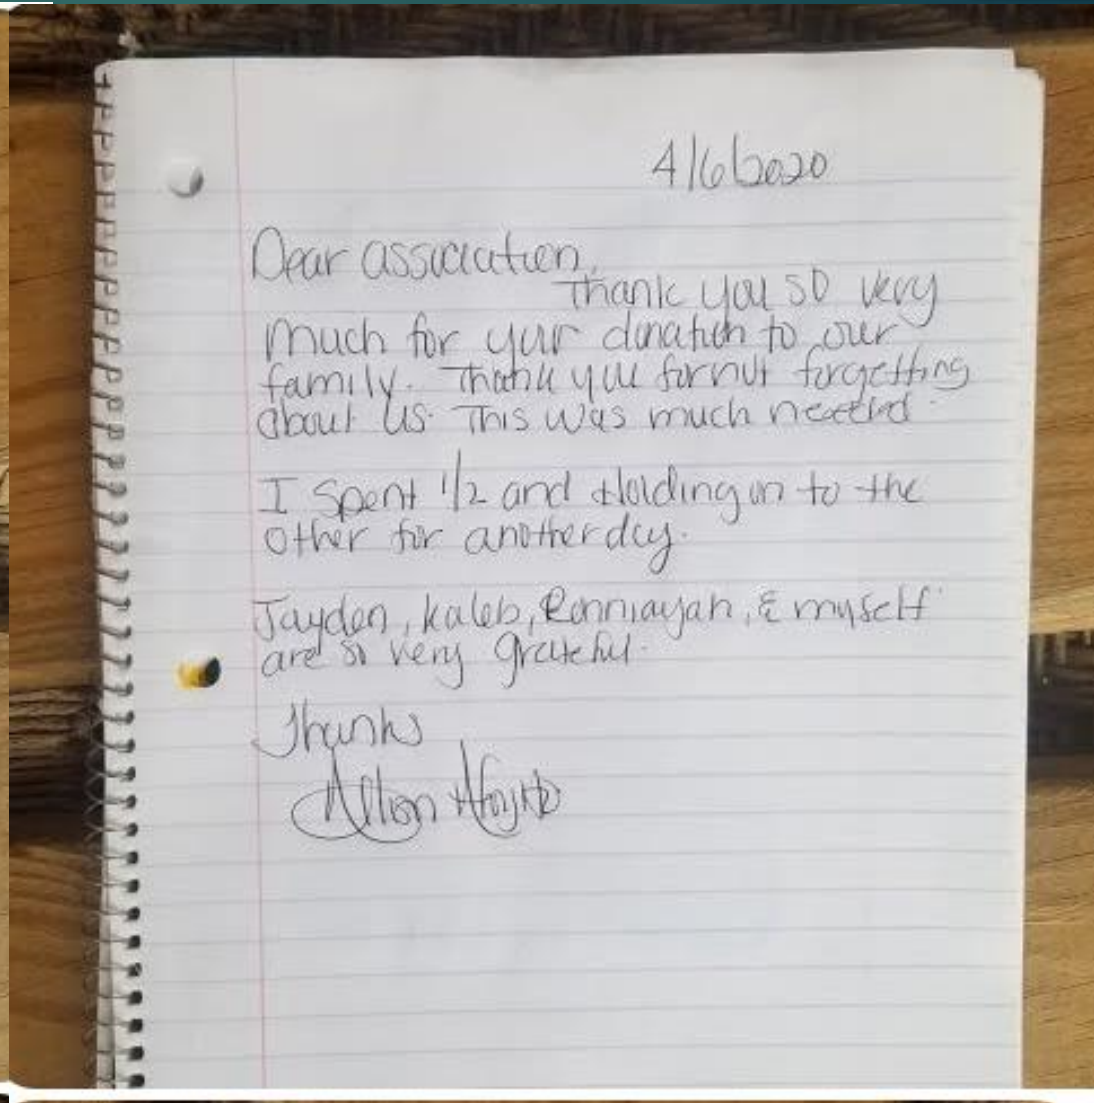 4/6/2020
Dear association,
Thank you so very
much for your donation to our
family. Thank you for not forgetting
about us. This was much needed.
I spent 1/2 and Holding on to the
other for another day.
Jayden, Kaleb, Ronniayah, & myself
are so very grateful.
Thanks